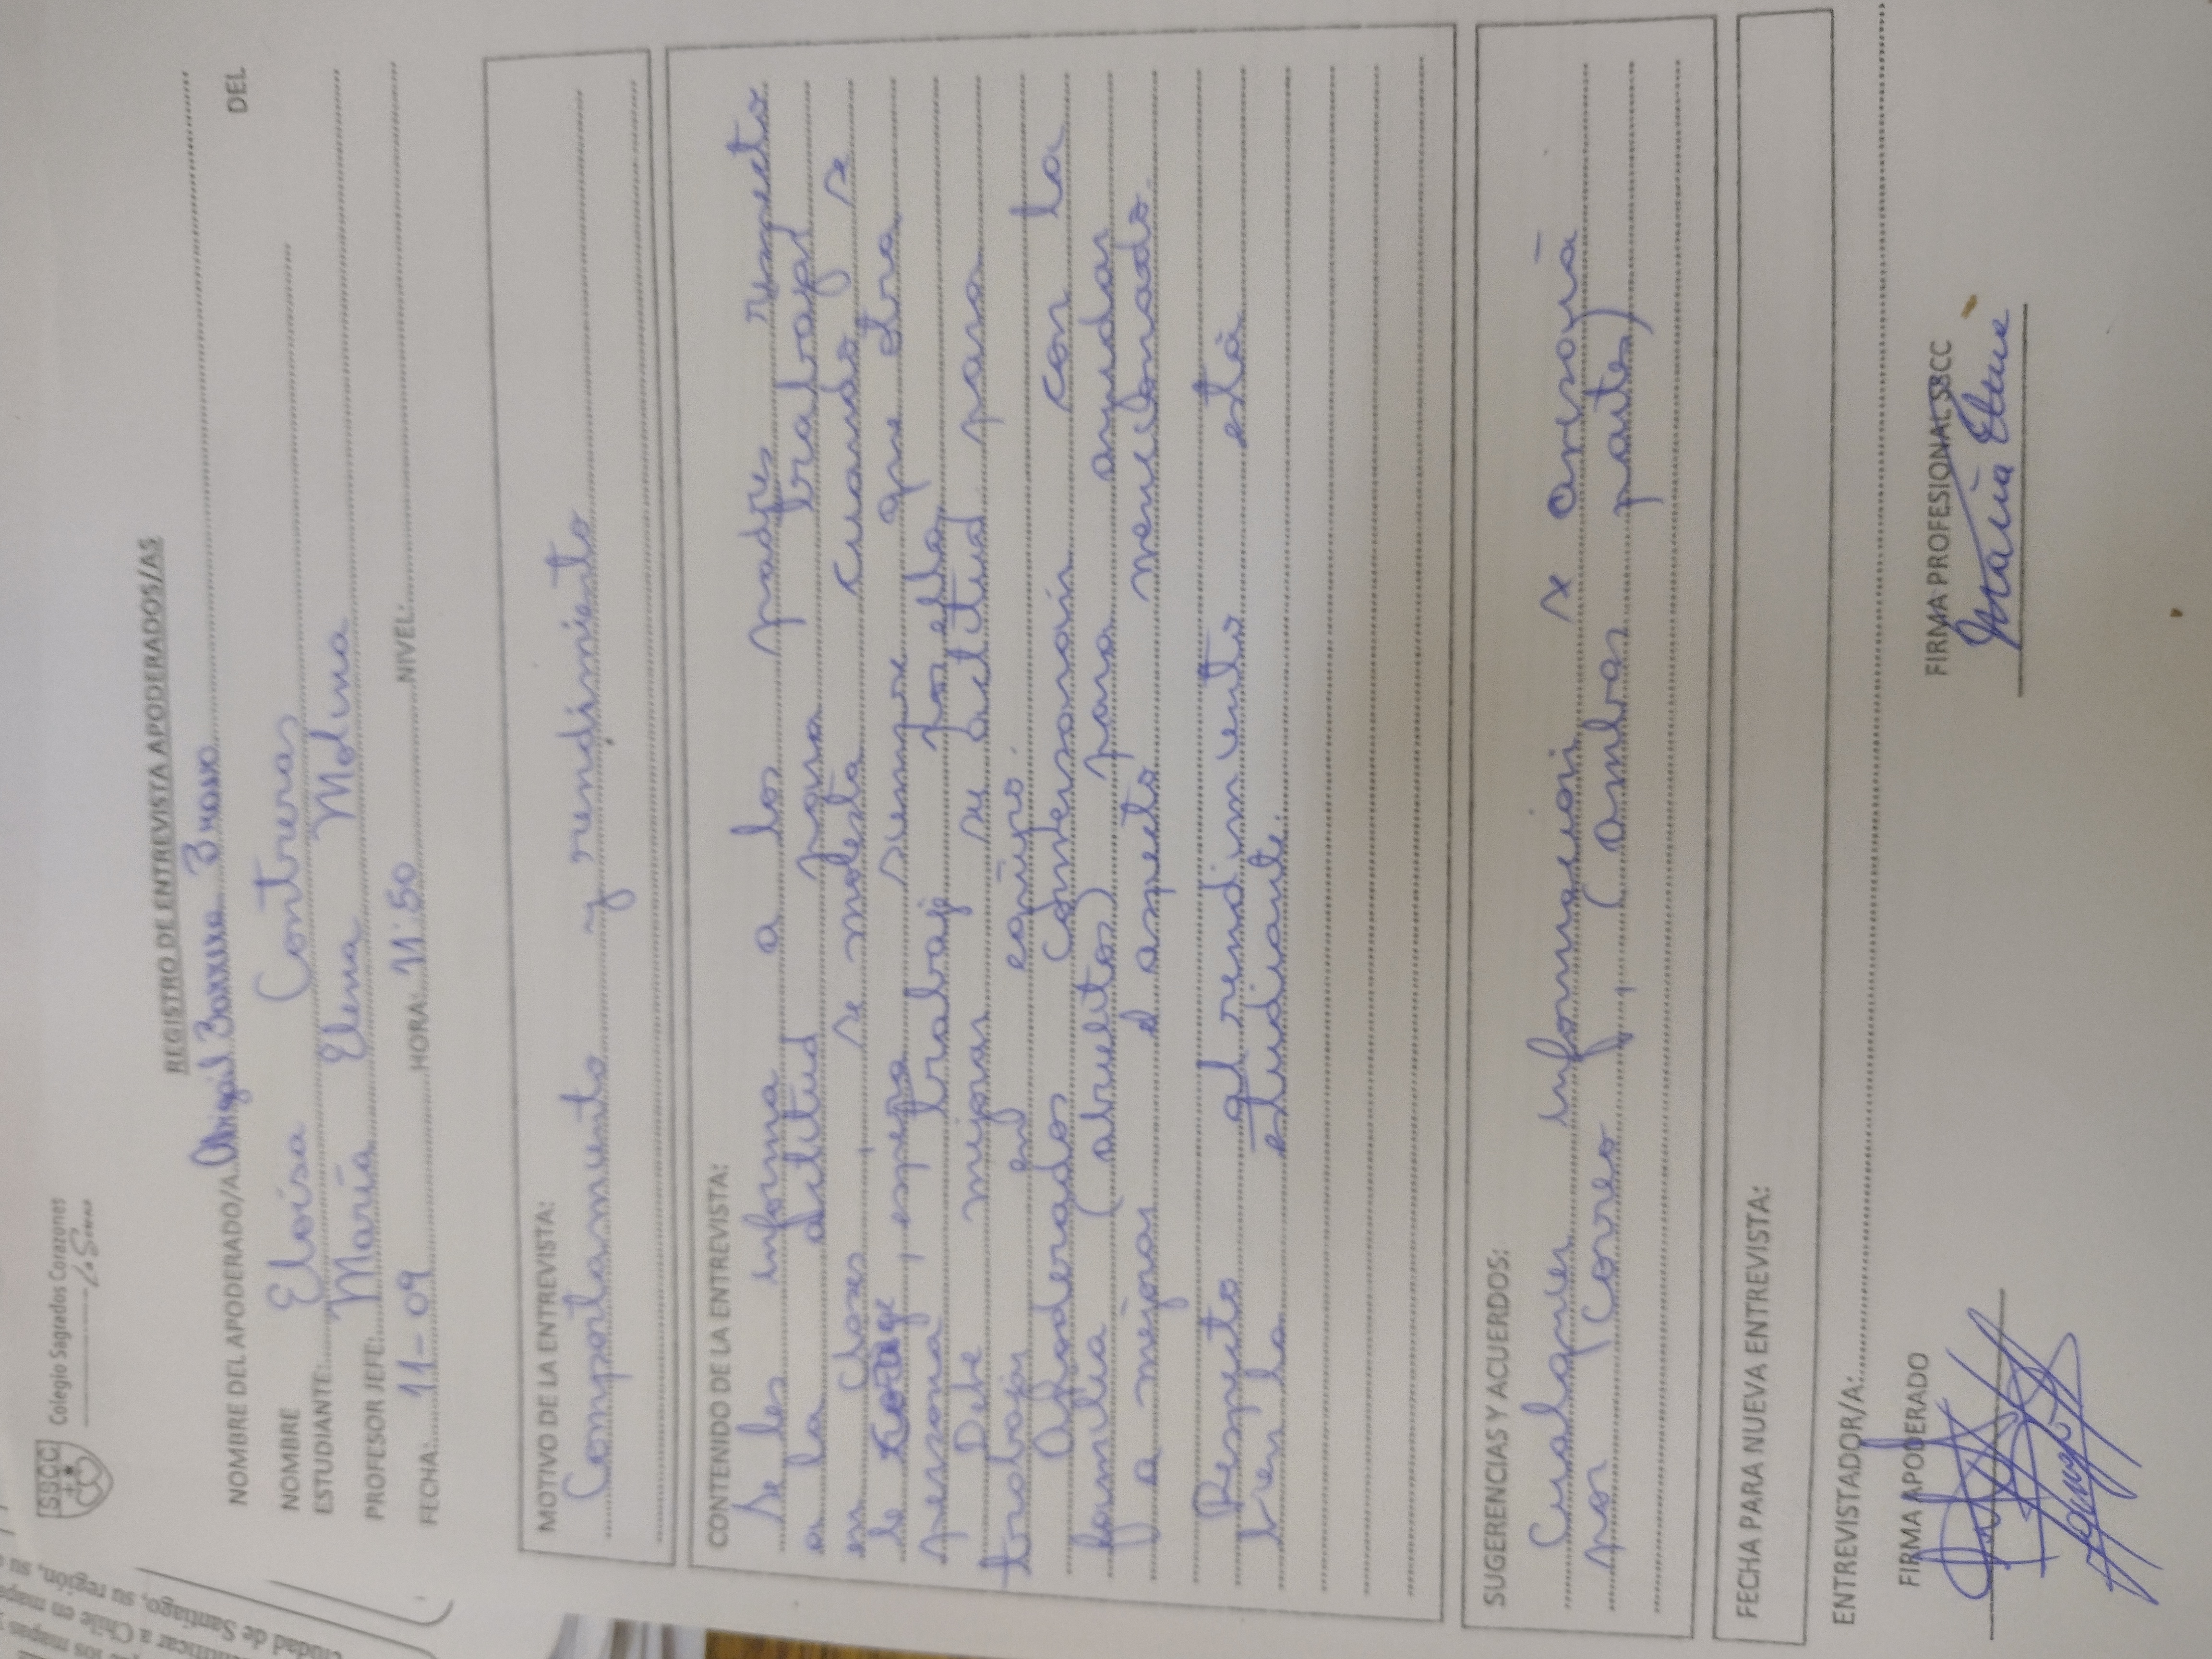 SS.CC Colegio Sagrados Corazones
REGISTRO DE ENTREVISTA APODERADOS/AS
NOMBRE DEL APODERADO/A: Barrera Bravo DEL
NOMBRE
ESTUDIANTE: Eloísa Contreras
PROFESOR JEFE: María Elena Molina
FECHA: 11-09 HORA: 11:50 NIVEL:
MOTIVO DE LA ENTREVISTA:
Comportamiento y rendimiento
CONTENIDO DE LA ENTREVISTA:
Se les informa a los padres respecto
a la actitud para trabajar
en clases, se molesta cuando se
le , espera siempre que otra
persona trabaje por ella.
Debe mejorar su actitud para
trabajar en equipo.
Apoderados conversarán con la
familia (abuelitos) para ayudar
a mejorar el aspecto mencionado.
Respecto al rendimiento está
bien la estudiante.
SUGERENCIAS Y ACUERDOS:
Cualquier información x
por correo, (ambas partes)
FECHA PARA NUEVA ENTREVISTA:
ENTREVISTADOR/A:
FIRMA APODERADO
FIRMA PROFESIONAL SSCC
María Elena
ciudad de Santiago, su región, su